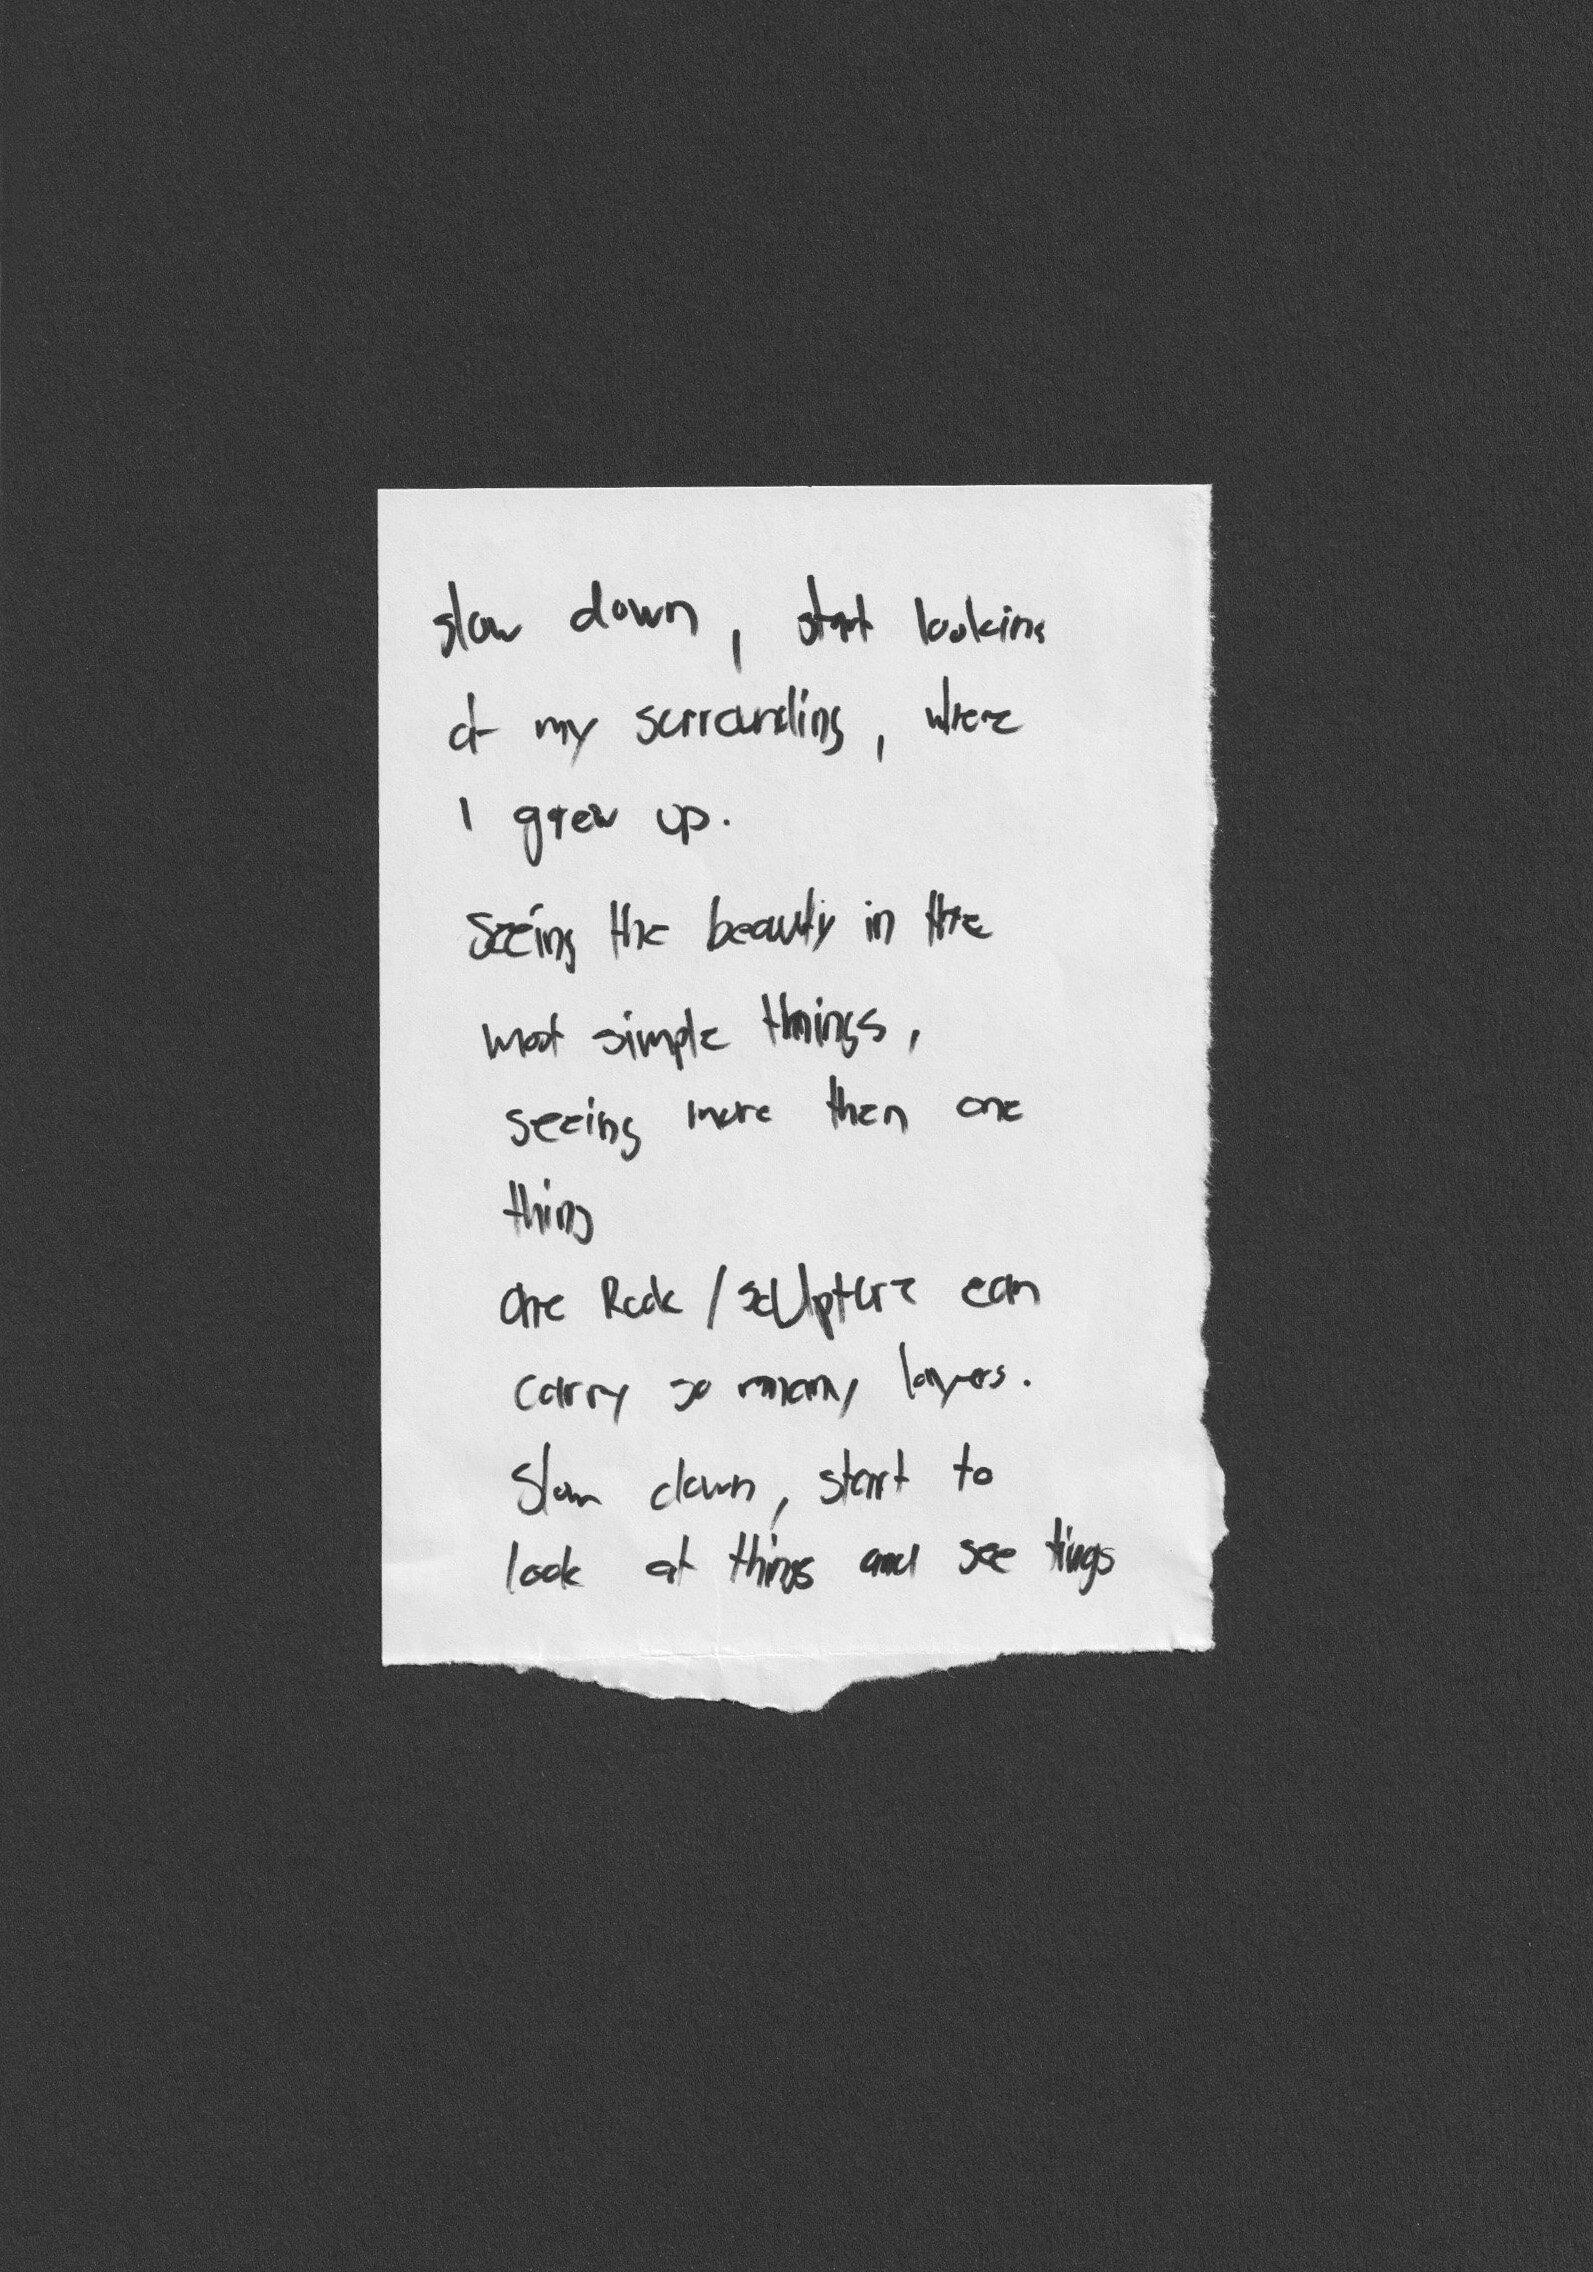 slow down, start looking
at my surrounding, where
I grew up.
seeing the beauty in the
most simple things,
seeing more then one
thing
one Rock / sculpture can
carry so many layers.
Slow down, start to
look at things and see tings